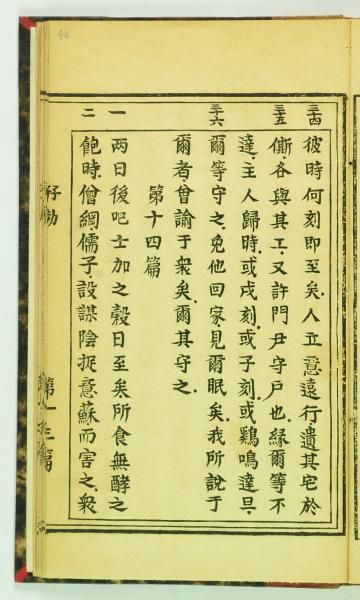 46
三十四 彼時何刻即至矣.人立意遠行.遺其宅於
三十五 厮.各與其工.又許門尹守戶也.緣爾等不
達.主人歸時.或戌刻.或子刻.或鷄鳴達旦.
三十六 爾等守之.免他回家見爾眠矣.我所說于
爾者.曾諭于衆矣.爾其守之.
第十四篇
一 兩日後吧士加之穀日至矣所食無酵之
二 飽時.僧綱.儒子.設謀陰捉意蘇而害之.衆
第十三篇